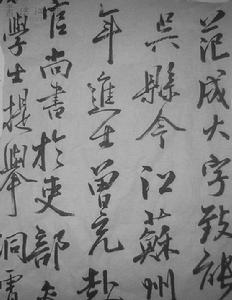 范成大字致能
吳縣今江蘇州
年進士曾充赴
官尚書於吏部
學士提舉洞霄